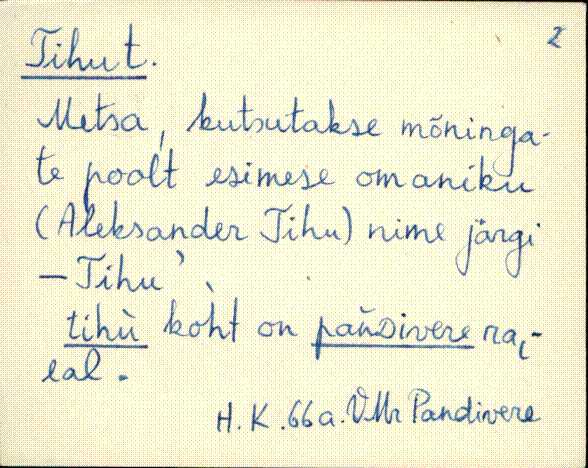 2
Tihut.
Metsa, kutsutakse mõninga-
te poolt esimese omaniku
(Aleksander Tihu) nime järgi
– Tihu'
tihù kòht on pañdivere ra-
eal.
H. K. 66 a. VMr Pandivere